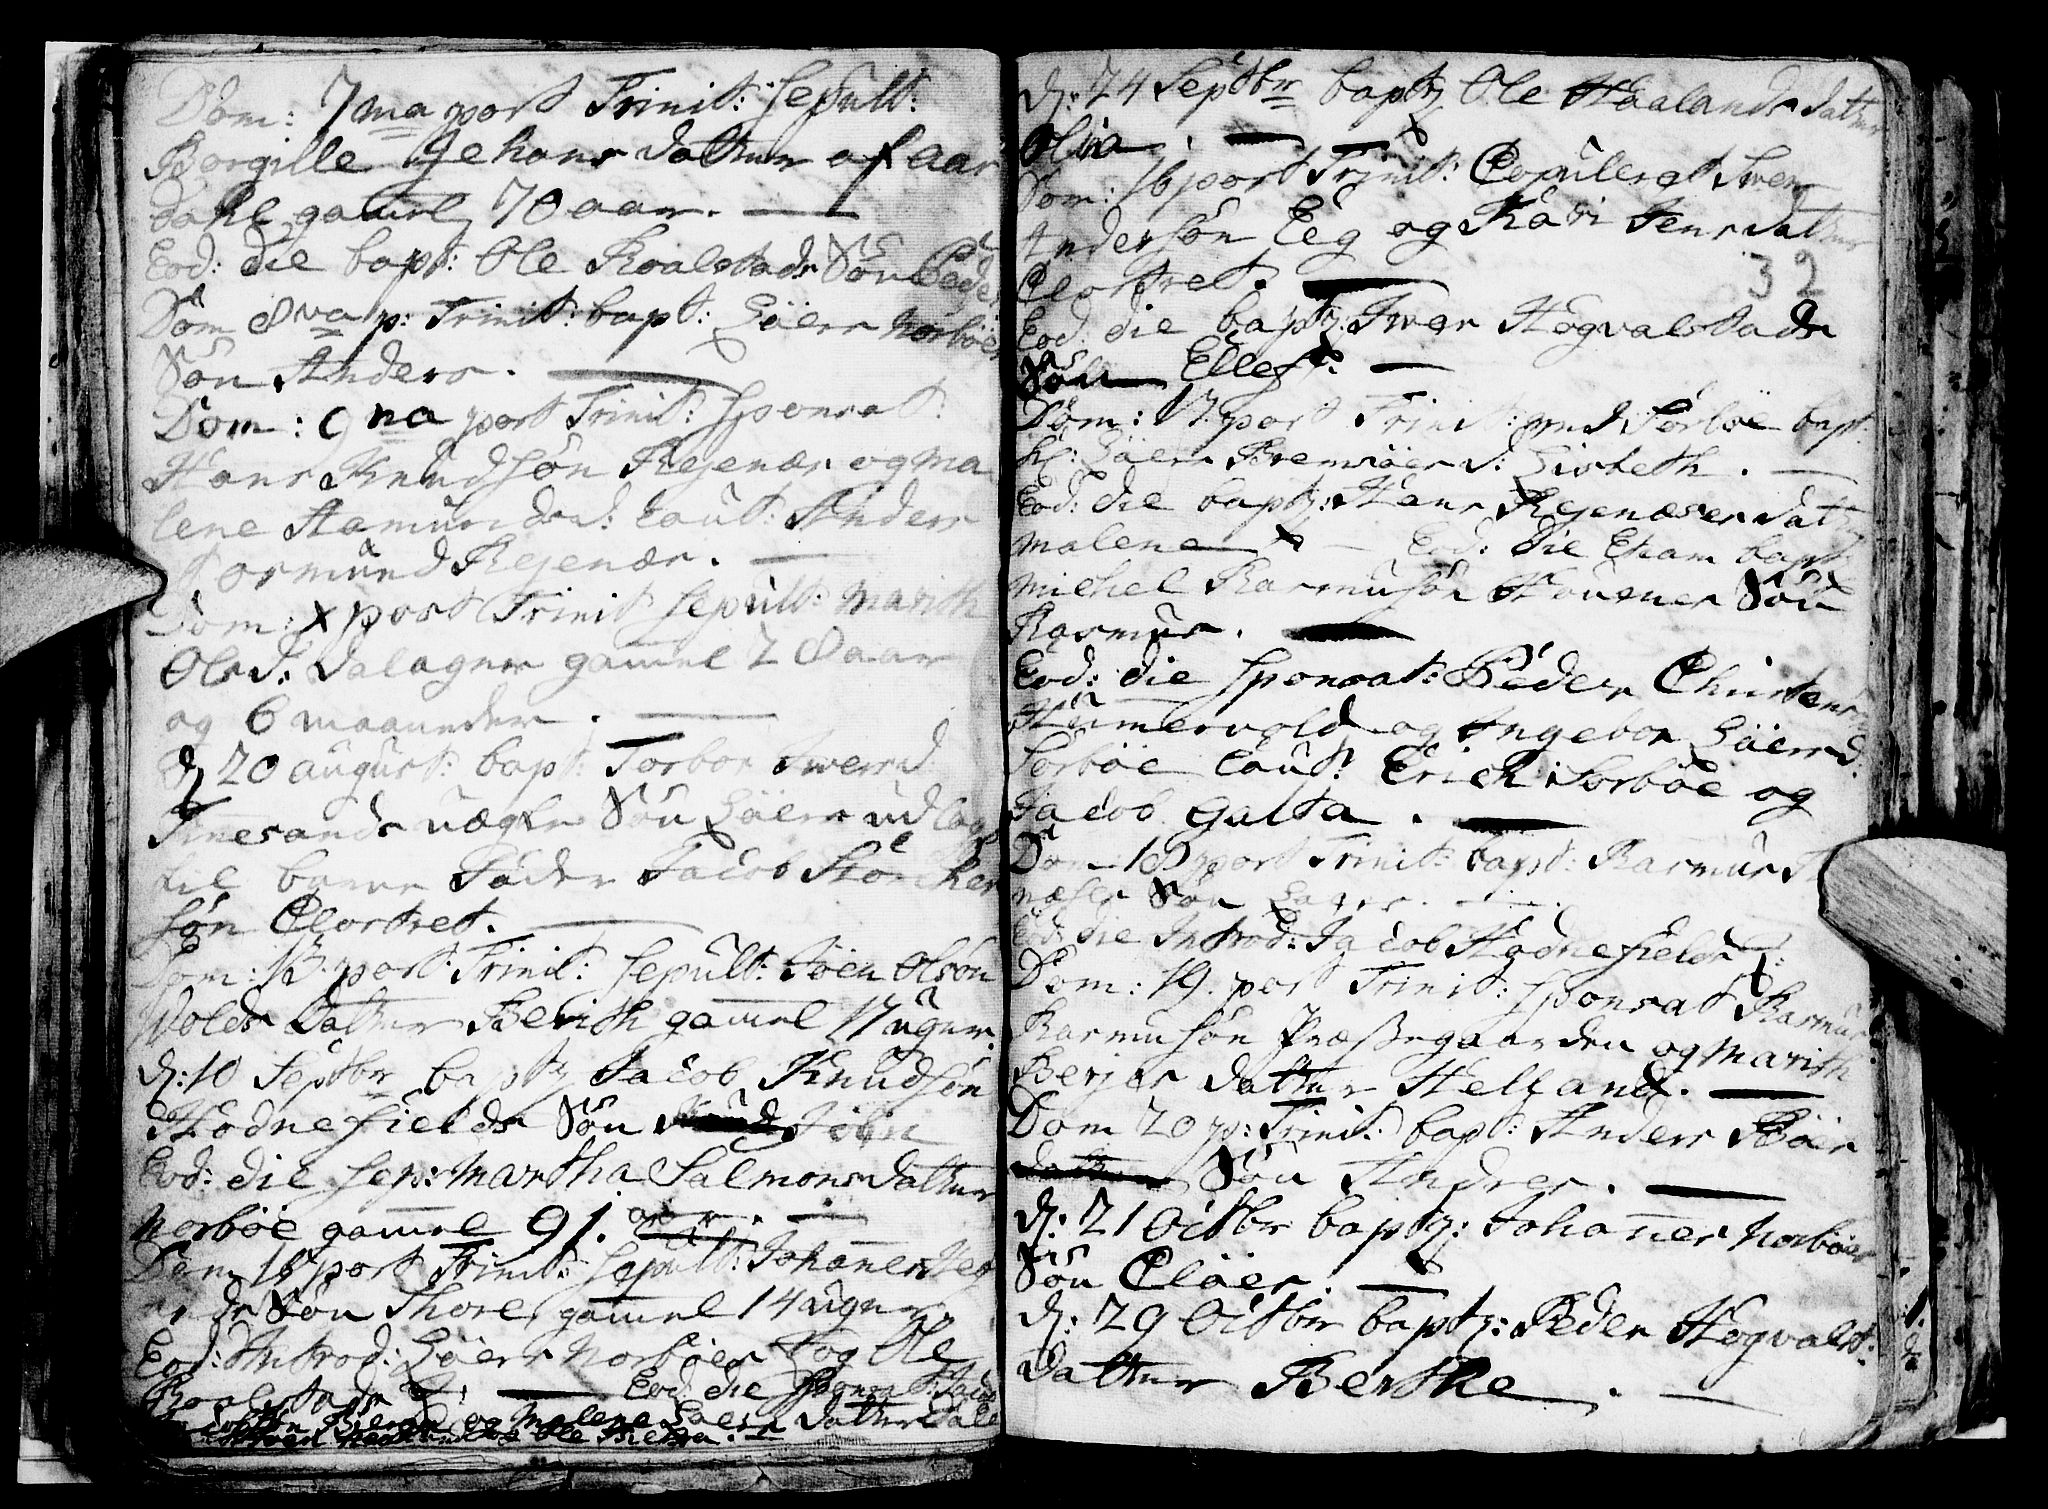 Dom: 7ma post Trinit: Sepult:
Borgille Jehans datter af Aar
dahl gamel 70 aar.
Eod: die bapt: Ole Roalstads Søn Peder
Dom 8va p: Trinit: bapt: Søern Norbøes
Søn Anders.
Dom: 9na post Trinit: Sponsat:
Hans Knudsøn Rejenæs og Ma
lene Aamunds d: Caut: Anders
Tormund Rejenæs.
Dom: X post Trinit Sepult: Marith
Ols d: Dalagner gamel 28 aar
og 6 maaneder.
d: 20 August: bapt: Torbor Iversd
Tunesands uægte Søn Søern udlagt
til barne Fader Jacob
søn Clostret.
Dom: 13 post: Trinit: Sepult: Joen Olsøn
Wolds datter Berith gamel 17 uger.
d: 10 Septbr bapt: Jacob Knudsøn
Hodnefields Søn Jobin
Eod: die Sep: Martha Salmons datter
Norbøe gamel 91. aar.
Dom 15 post Trinit: Sepult: Johannes
Søn Thore gamel 14 uger
Eod: Introd: Søern Norbøes og Ole
Roalstads Eod: die Sponsat: Jacob
og Malene Søern datter Dale
Ole
d: 24 Septbr bapt: Ole Haalands datter
Olia.
Dom: 16 post Trinit: Copuleret Iver
Andersøn Eeg og Kari Jens datter
Clostret. 32
Eod: die bapt: Iver Hogvalstads
Søn Ellef.
Dom: 17 post Trinit: ved Sørbøe bapt:
Hl: Søern Bremsøes d: Lisbeth.
Eod: die bapt: Hans Rejenæses datter
Malene Eod: die Eham bapt:
Michel Rasmusøn Housner Søn
Rasmus.
Eod: die Sponsat: Peder Christens
Himervold og Ingebor Søernd:
Sørbøe Caut: Erich Sorbøe og
Jacob Galta.
Dom 18 post Trinit: bapt: Rasmus
næser Søn Lars.
Eod: die Introd: Jacob Hodnefields
Dom: 19. post Trinit: Sponsat Rasmus
Rasmusøn Præstegaarden og Marith
Berjes datter Helland.
Dom 20 p: Trinit: bapt: Anders Bøes
Søn Andres.
d: 21 Octbr bapt: Johannes Norbøes
Søn Cløes.
d: 29 Octbr bapt: Peder Hogvalst:
datter Berthe.